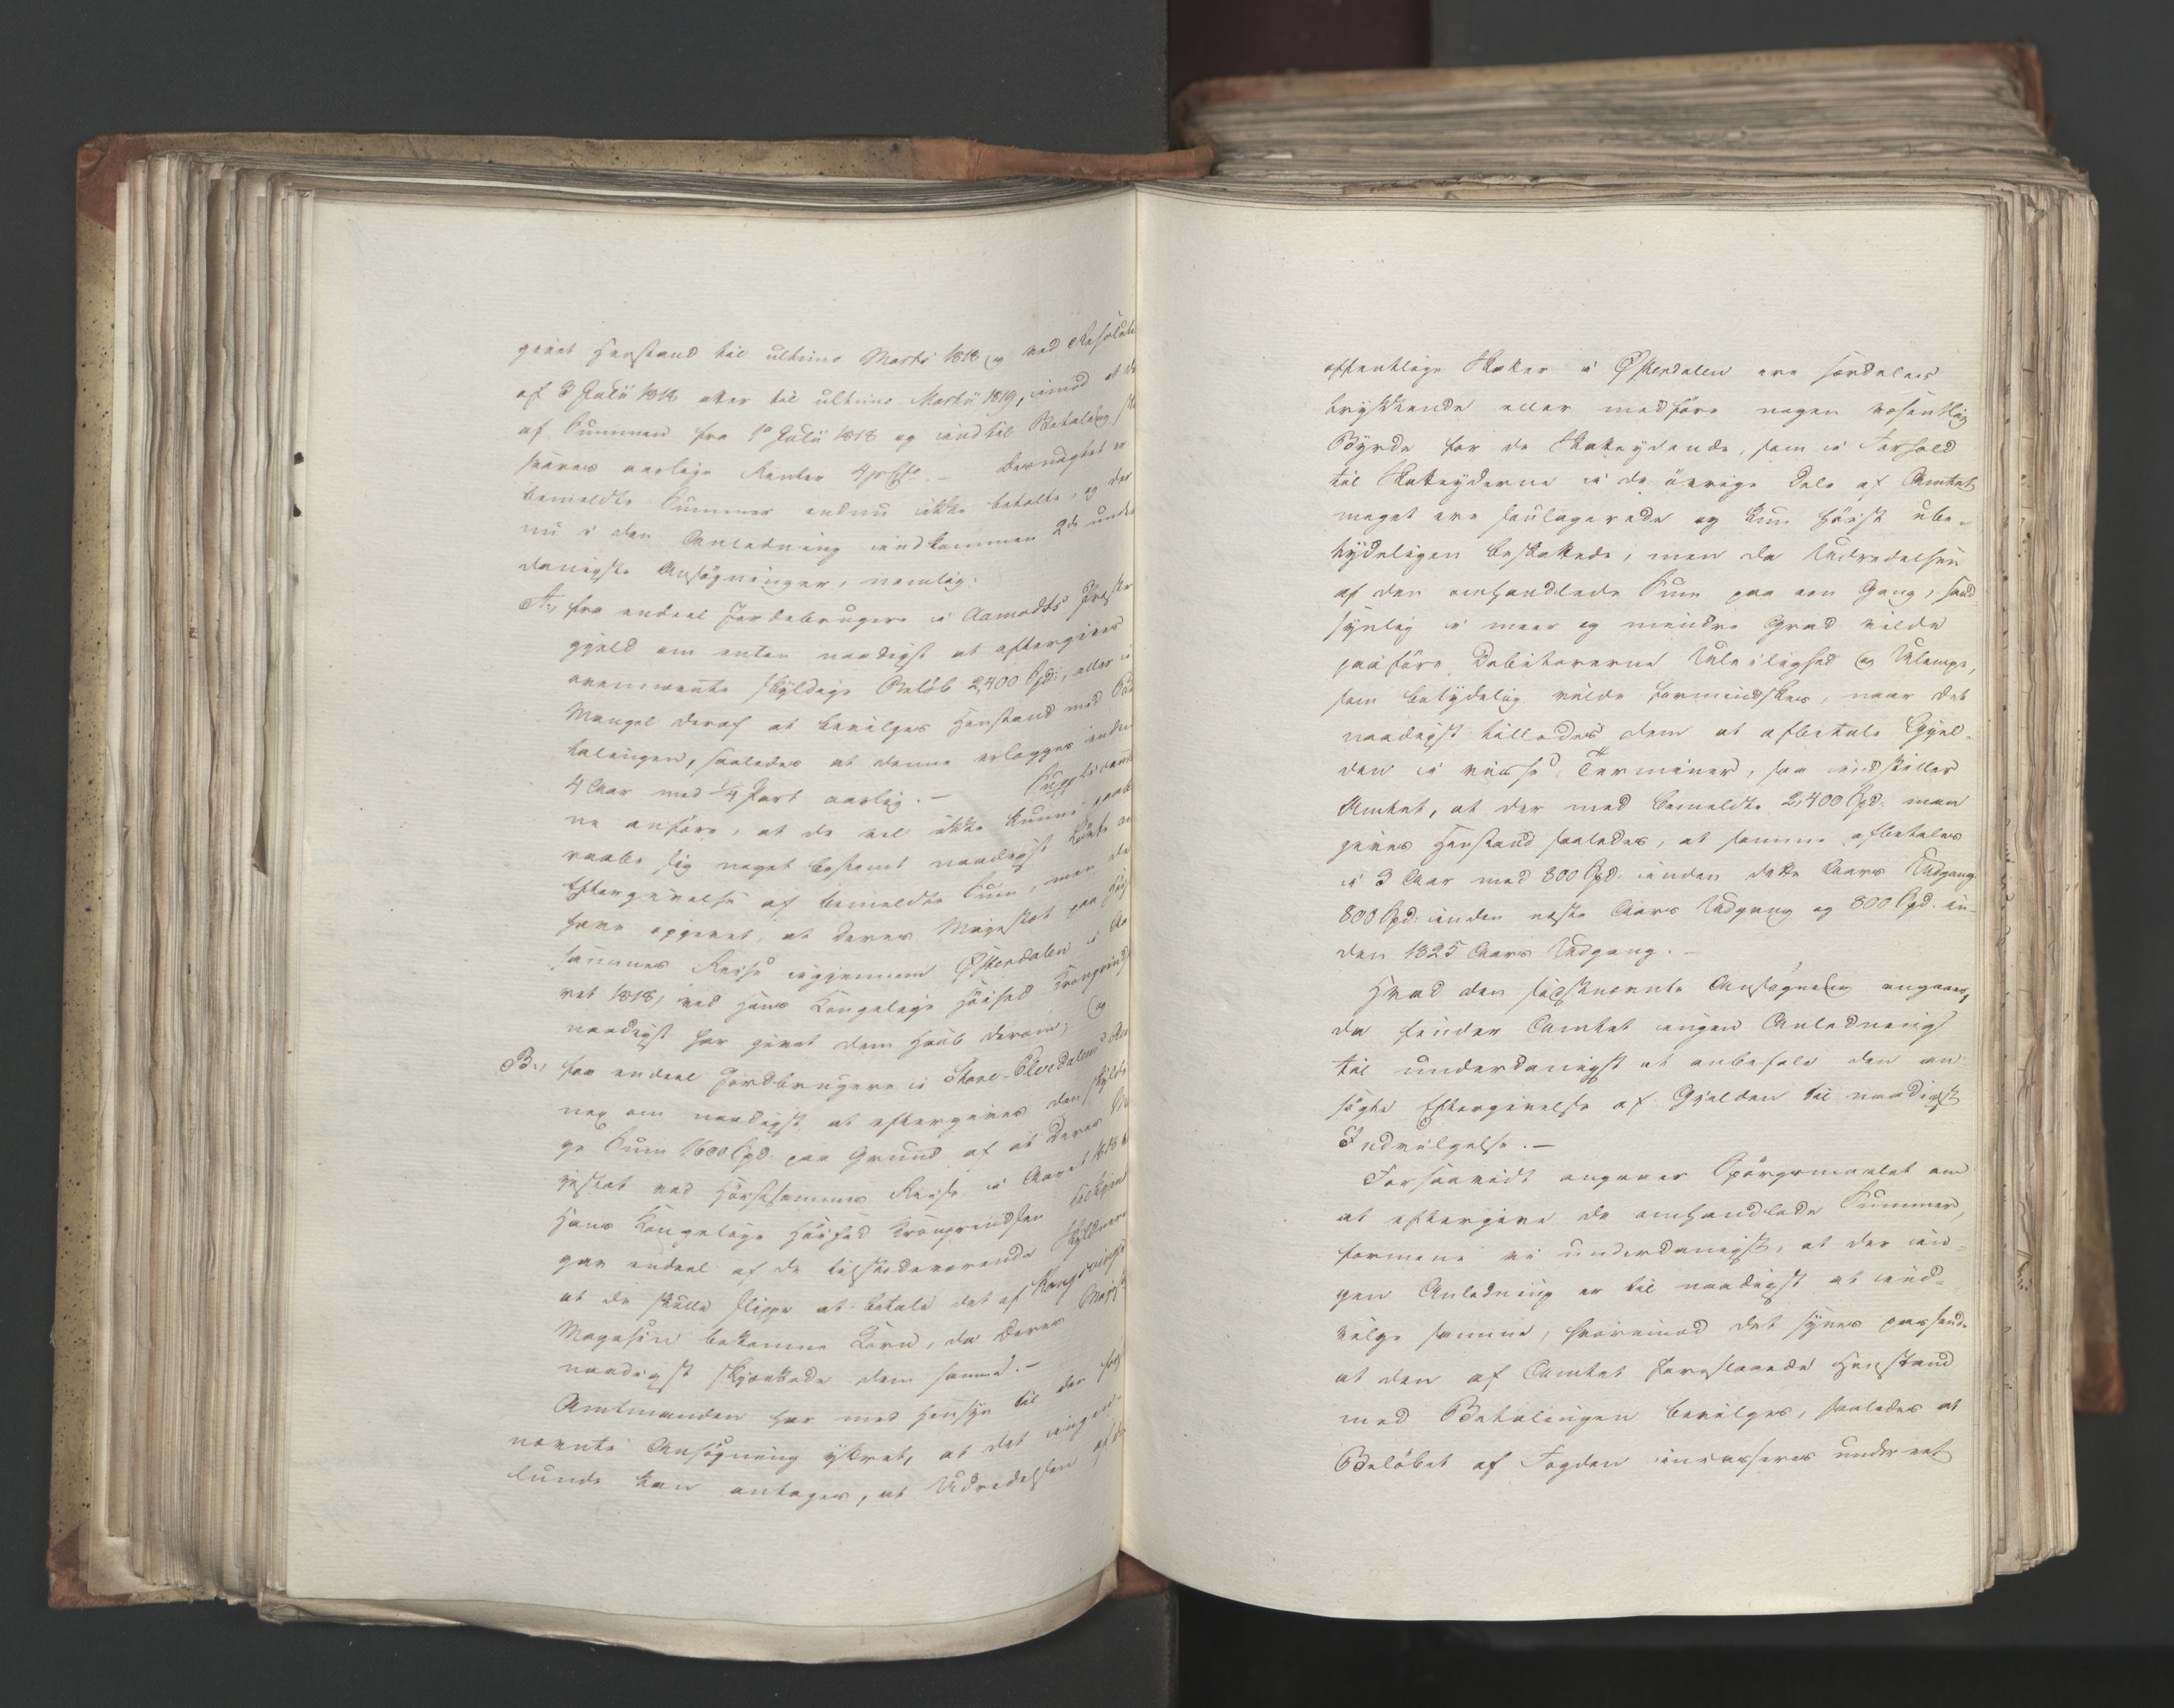 givet Henstand til ultimo Martii 1818 og ved Resolut
af 3 Julii 1818 atter til ultimo Martii 1819, imod at de
af Summen fra 1ste Julii 1818 og indtil Betaling
svares aarlige Renter 4 prCto. – Uagtet er
bemeldte Summer endnu ikke betalte, og der
nu i den Anledning indkommen 2de under
danigste Ansøgninger, nemlig:
A., fra endeel Jordebrugere i Aamodts Præste
gjeld om enten naadigst at eftergives
ovennævnte skyldige Beløb 2,400 Spd:, eller i
Mangel deraf at bevilges Henstand med Be
talingen, saaledes at denne erlægges inden
4 Aar med 1/4 Part aarlig. – Supplicanter
ne anføre, at de vel ikke kunne paabe
raabe sig noget bestemt naadigst Løfte om
Eftergivelse af bemeldte Sum, men de
have opgivet, at Deres Majestæt paa Høist
sammes Reise igjennem Østerdalen i Aa
ret 1818, ved Hans Kongelige Høihed Kronprinds
naadigst har givet dem Haab derom; og
B., fra endeel Jordbrugere i Store-Elvedalens An
nex om naadigst at eftergives den skyldi
ge Sum 1600 Spd. paa Grund af at Deres Ma
jestæt ved Høistsammes Reise i Aaret 1818
Hans Kongelige Høihed Kronprindsen tilkjende
gav endeel af de tilstedeværende Skyldnere
at de skulle slippe at betale det af Kongsvingers
Magasin bekomne Korn, da Deres Majest
naadigst skjænkede dem samme. –
Amtmanden har med Hensyn til den først
nævnte Ansøgning yttret, at det ingen
lunde kan antages, at Udredelsen af de
offentlige Skatter i Østerdalen ere særdeles
trykkende eller medføre nogen væsentlig
Byrde for de Skatteydende, som i Forhold
til Skatteyderne i de øvrige Dele af Amtet
meget ere soulagerede og kun høist ube-
tydeligen beskattede, men da Udredelsen
af den omhandlede Sum paa een Gang, sand
synlig i meer og mindre Grad vilde
paaføre Debitorerne Uleilighed og Ulempe,
som betydelig vilde formindskes, naar det
naadigst tillodes dem at afbetale Gjæl-
den i visse Terminer, saa indstiller
Amtet, at der med bemeldte 2,400 Spd: maa
gives Henstand saaledes, at samme afbetales
i 3 Aar med 800 Spd. inden dette Aars Udgang
800 Spd: inden næste Aars Udgang og 800 Spd. in-
den 1825 Aars Udgang. –
Hvad den sidstnævnte Ansøgning angaaer,
da finder Amtet ingen Anledning
til underdanigst at anbefale den an
søgte Eftergivelse af Gjælden til naadigst
Indvilgelse. –
Forsaavidt angaaer Spørgsmaalet om
at eftergive de omhandlede Summer,
formene vi underdanigst, at der in-
gen Anledning er til naadigst at ind-
vilge samme, hvorimod det synes passende
at den af Amtet foreslaaede Henstand
med Betalingen bevilges, saaledes at
Beløbet af Fogden incasseres under eet